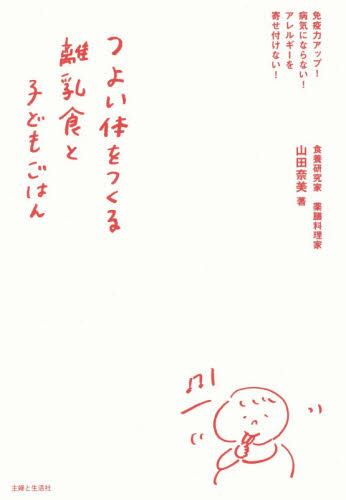 免疫力アップ!
病気にならない!
アレルギーを
寄せ付けない!
つよい体をつくる
離乳食と
子どもごはん
食養研究家 薬膳料理家
山田奈美 著
主婦と生活社